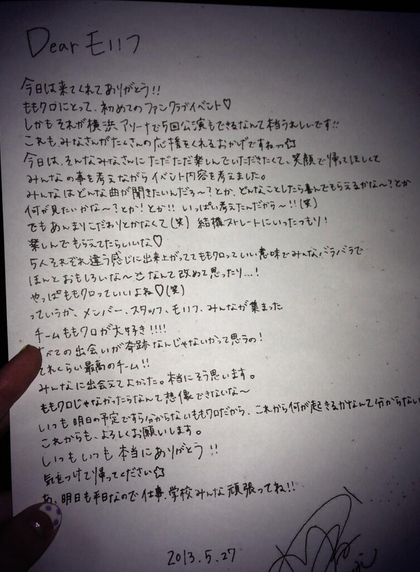 Dear モノノフ
今日は来てくれてありがとう!!
ももクロにとって、初めてのファンクラブイベント♡
しかもそれが横浜アリーナで5回公演もできるなんて本当うれしいです!!
これもみなさんがたくさんの応援をくれるおかげですねっ☆
今日は、そんなみなさんにただただ楽しんでいただきたくて、笑顔で帰ってほしくて
みんなの事を考えながらイベント内容を考えました。
みんなはどんな曲が聞きたいんだろ〜?とか、どんなことしたら喜んでもらえるかな〜?とか
何が見たいかな〜?とか!とか!!いっぱい考えたんだから〜!!(笑)
でもあんまりこだわりとかなくて(笑) 結構ストレートにいったつもり!
楽しんでもらえてたらいいな♡
5人それぞれ違う感じに出来上がっててももクロっていい意味でみんなバラバラで
ほんとおもしろいな〜なんて改めて思ったり…!
やっぱももクロっていいよね♡(笑)
っていうか、メンバー、スタッフ、モノノフ、みんなが集まった
チームももクロが大好き!!!!
すべての出会いが奇跡なんじゃないかって思うの!
それくらい最高のチーム!!
みんなに出会えてよかった。本当にそう思います。
ももクロじゃなかったらなんて想像できないな〜
いつも明日の予定ですら分からないももクロだから、これから何が起きるかなんて分からない
これからも、よろしくお願いします。
いつもいつも本当にありがとう!!
気をつけて帰ってください☆
あ、明日も平日なので仕事、学校みんな頑張ってね!!
2013.5.27